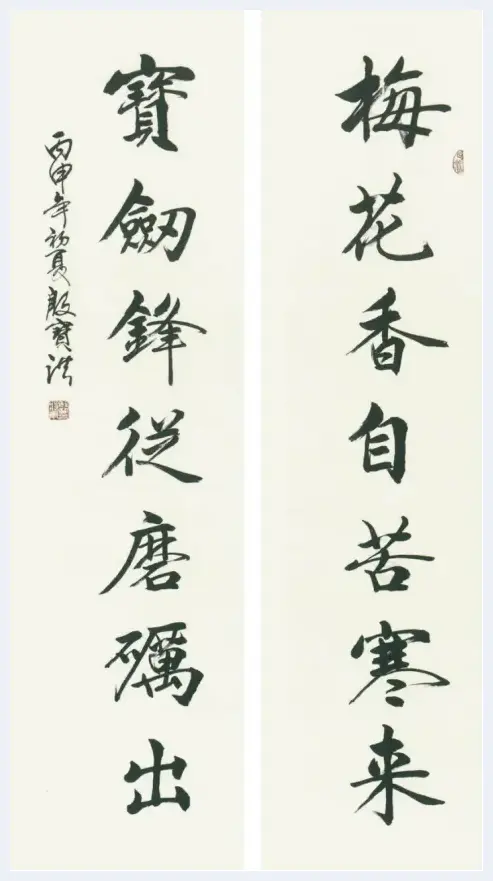 梅花香自苦寒来
寶劔鋒從磨礪出
丙申年初夏殷寶洪